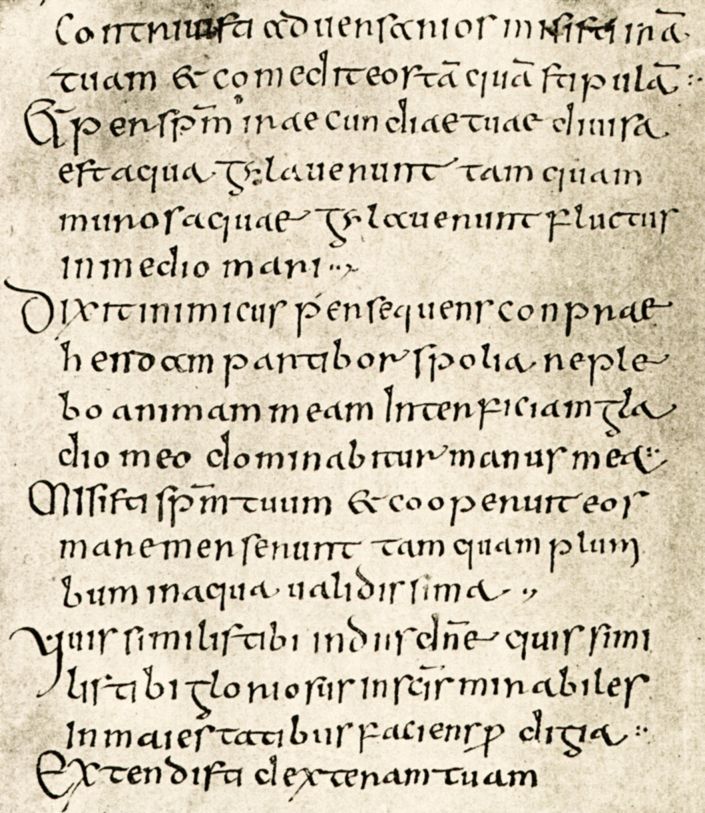 Contriuisti aduersarios misisti irā
tuam & comedit eos tā quā stipulā :·
& per sp̄m iracundiae tuae diuisa
est aqua gelauerunt tam quam
muros aquae gelauerunt fluctus
in medio mari ··,
Dixit inimicus persequens conprae
hendam partibor spolia reple
bo animam meam Interficiam gla
dio meo dominabitur manus mea :·
Misisti sp̄m tuum & cooperuit eos
mare merserunt tam quam plum
bum in aqua ualidissima ··,
Quis similis tibi in diis dn̄e quis simi
lis tibi gloriosus in sc̄is mirabiles
In maiestatibus faciens ꝓdigia :·
Extendisti dexteram tuam